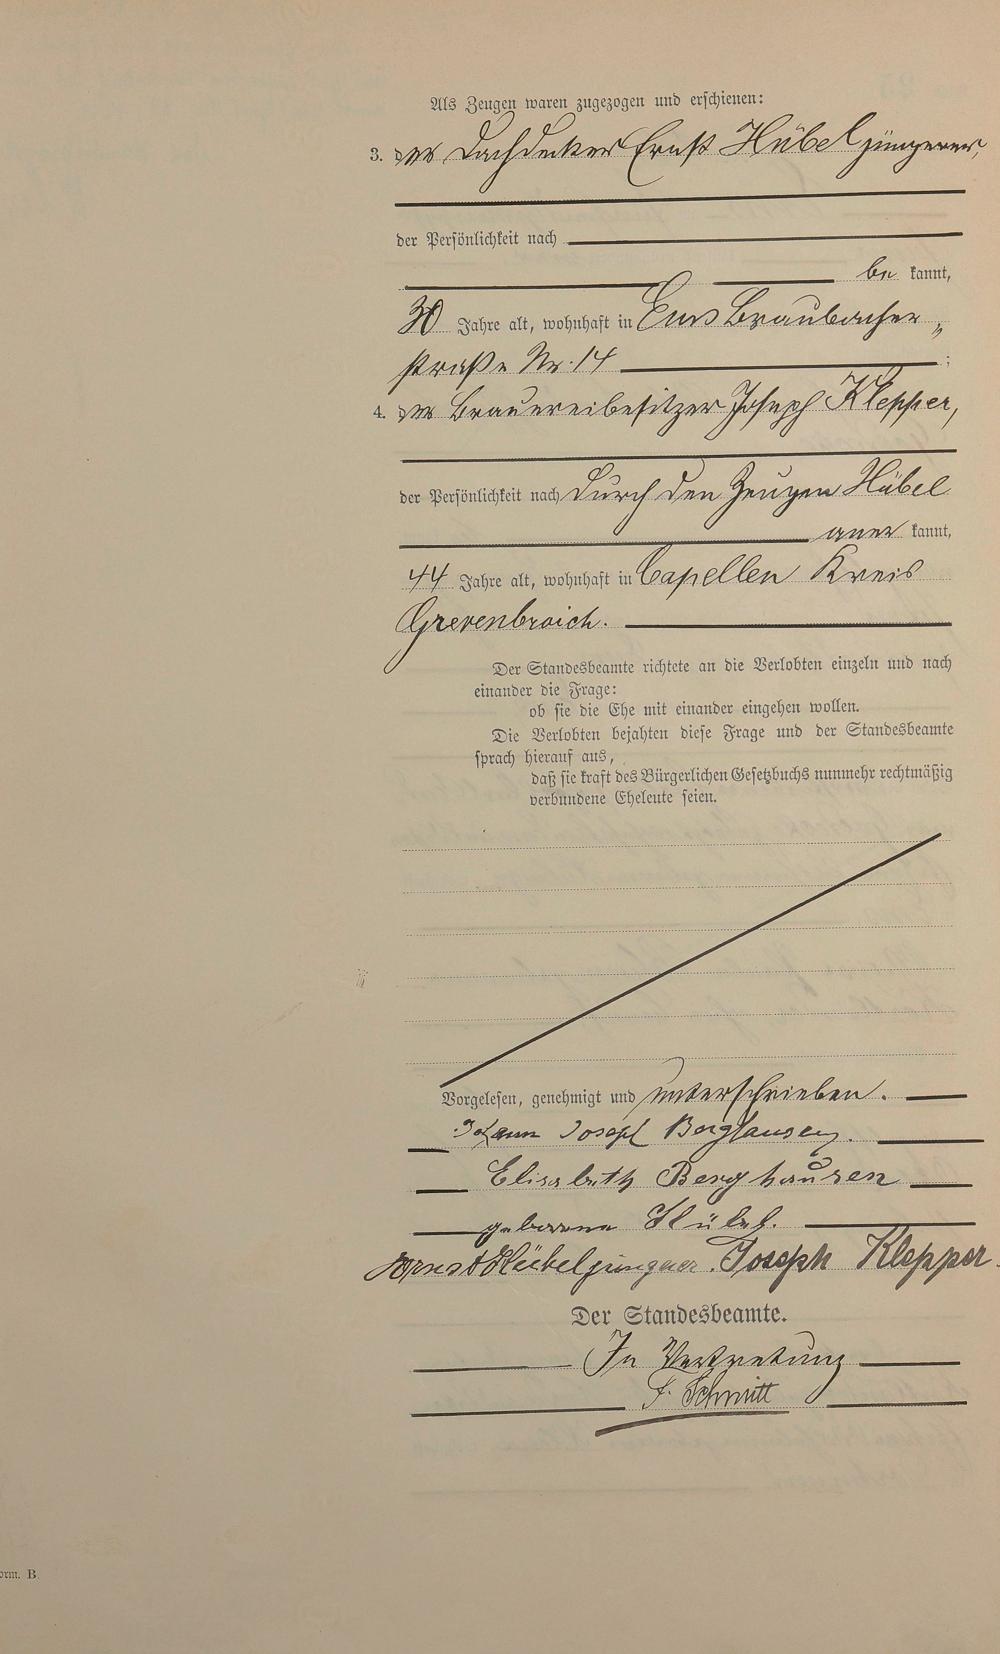 Als Zeugen waren zugezogen und erschienen:
3. der Dachdecker Ernst Hübel jüngerer,
der Persönlichkeit nach
be kannt,
30 Jahre alt, wohnhaft in Ems Braubacher„
straße Nr. 14 ;
4. der Brauereibesitzer Joseph Klepper,
der Persönlichkeit nach durch den Zeugen Hübel
aner kannt,
44 Jahre alt, wohnhaft in Capellen Kreis
Grevenbroich.
Der Standesbeamte richtete an die Verlobten einzeln und nach
einander die Frage:
ob sie die Ehe mit einander eingehen wollen.
Die Verlobten bejahten diese Frage und der Standesbeamte
sprach hierauf aus,
daß sie kraft des Bürgerlichen Gesetzbuchs nunmehr rechtmäßig
verbundene Eheleute seien.
Vorgelesen, genehmigt und unterschrieben.
Johann Joseph Berghausen.
Elisabeth Berghausen
geborene Hübel.
Ernst Hübel jüngerer. Joseph Klepper.
Der Standesbeamte.
In Vertretung
F. Schmitt
orm. B